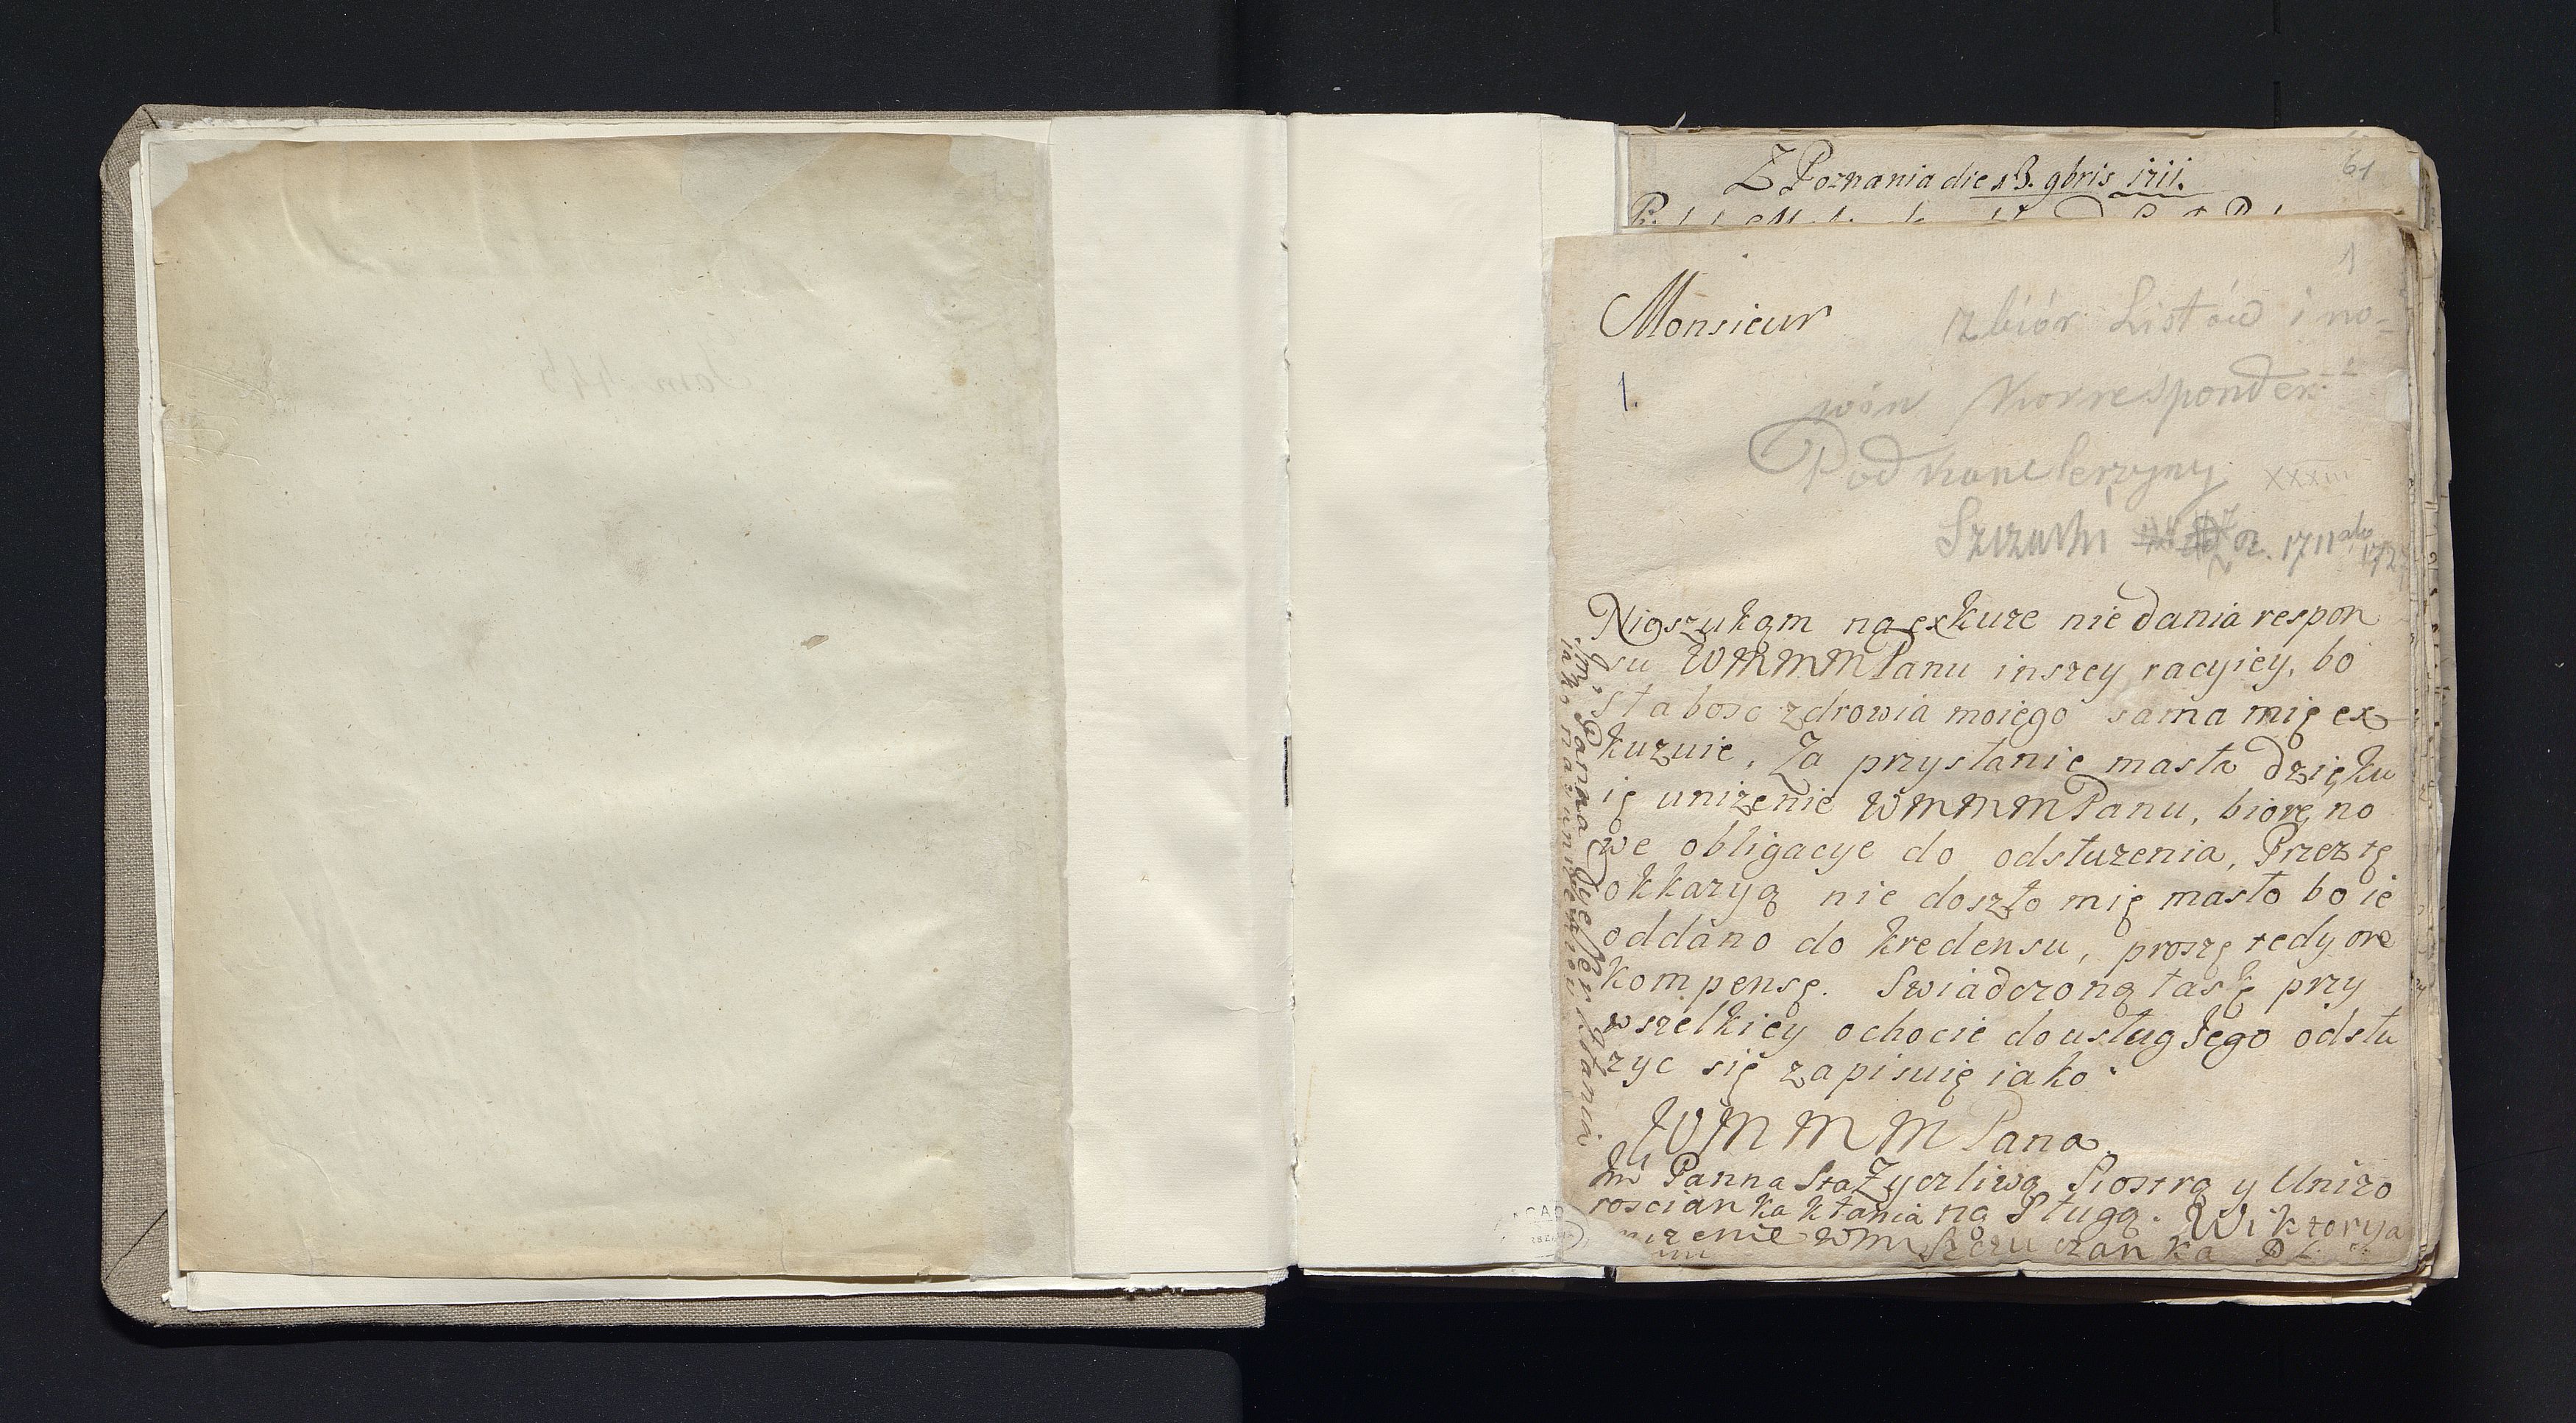 Z Poznania die 13. 9bris 1711.
61
1
Monsieur
Zbiór Listów i no-
win Korresponden.
1.
Podkanclerzyny
XXXIII
Szczuki R. 1711 do 172
Nieszukam na exkuze nie dania respon
su WMMMPanu inszey racyiey, bo
słabosc zdrowia moiego sama mię ex
kuzuie, Za przysłanie masła dzięku
ię uniżenie WMMMPanu, biorę no
we obligacye do odsłużenia, Przez tę
okkazyą nie doszło mię masło bo ie
oddano do kredensu, proszę tedy o re
kompensę. Swiadczoną łaskę przy
wszelkiey ochocie do usług Jego odsłu
zyc się zapisuię iako
WMMMPana
Im Panna Sta Zyczliwą Siostrą y Unizo
roscianka kłania ną Sługą. Wiktorya
nizenie WMM Szczuczanka
Im Panna kłania
iako nayunizeniey